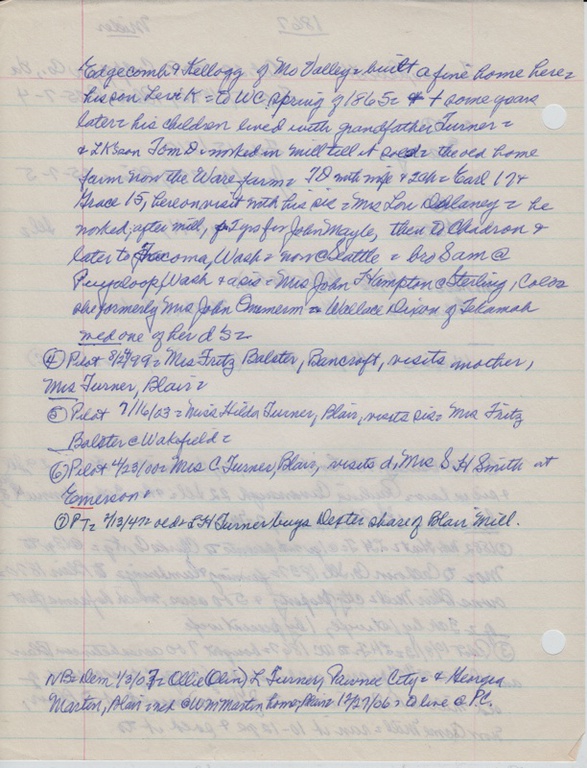 Edgecomb & Kellogg of Mo Valley = built a fine home here =
his son Levi K = to WC spring of 1865 = & + some years
later = his children lived with grandfather Turner =
& LK's son Tom D = worked in mill till it sold = the old home
farm now the Ware farm = TD with wife & 2ch = Earl 17 &
Grace 15, here on visit with his sis = Mrs Lon Delaney = he
worked, after mill, yrs for John Mayle, then to Chadron &
later to Tacoma, Wash = now @ Seattle = bro Sam @
Puyaloop, Wash & a sis = Mrs John Hampton @ Sterling, Colo =
she formerly Mrs John = Wallace Dixon of Tekamah
med one of her d's =
④ Pilot 3/27/99 = Mrs Fritz Balster, Bancroft, visits mother,
Mrs Turner, Blair =
⑤ Pilot 7/16/03 = Miss Hilda Turner, Blair, visits sis = Mrs Fritz
Balster @ Wakefield =
⑥ Pilot 4/23/00 = Mrs C Turner, Blair, visits d, Mrs S H Smith at
Emerson =
⑦ PT = 2/13/47 = old = LH Turner buys Dexter share of Blair Mill.
NB = Dem 1/3/07 = Ollie (Olin) L Turner, Pawnee City = & Georgia
Martin, Blair = med @ Wm Martin home, Blair 12/27/06 = to live @ P.C.